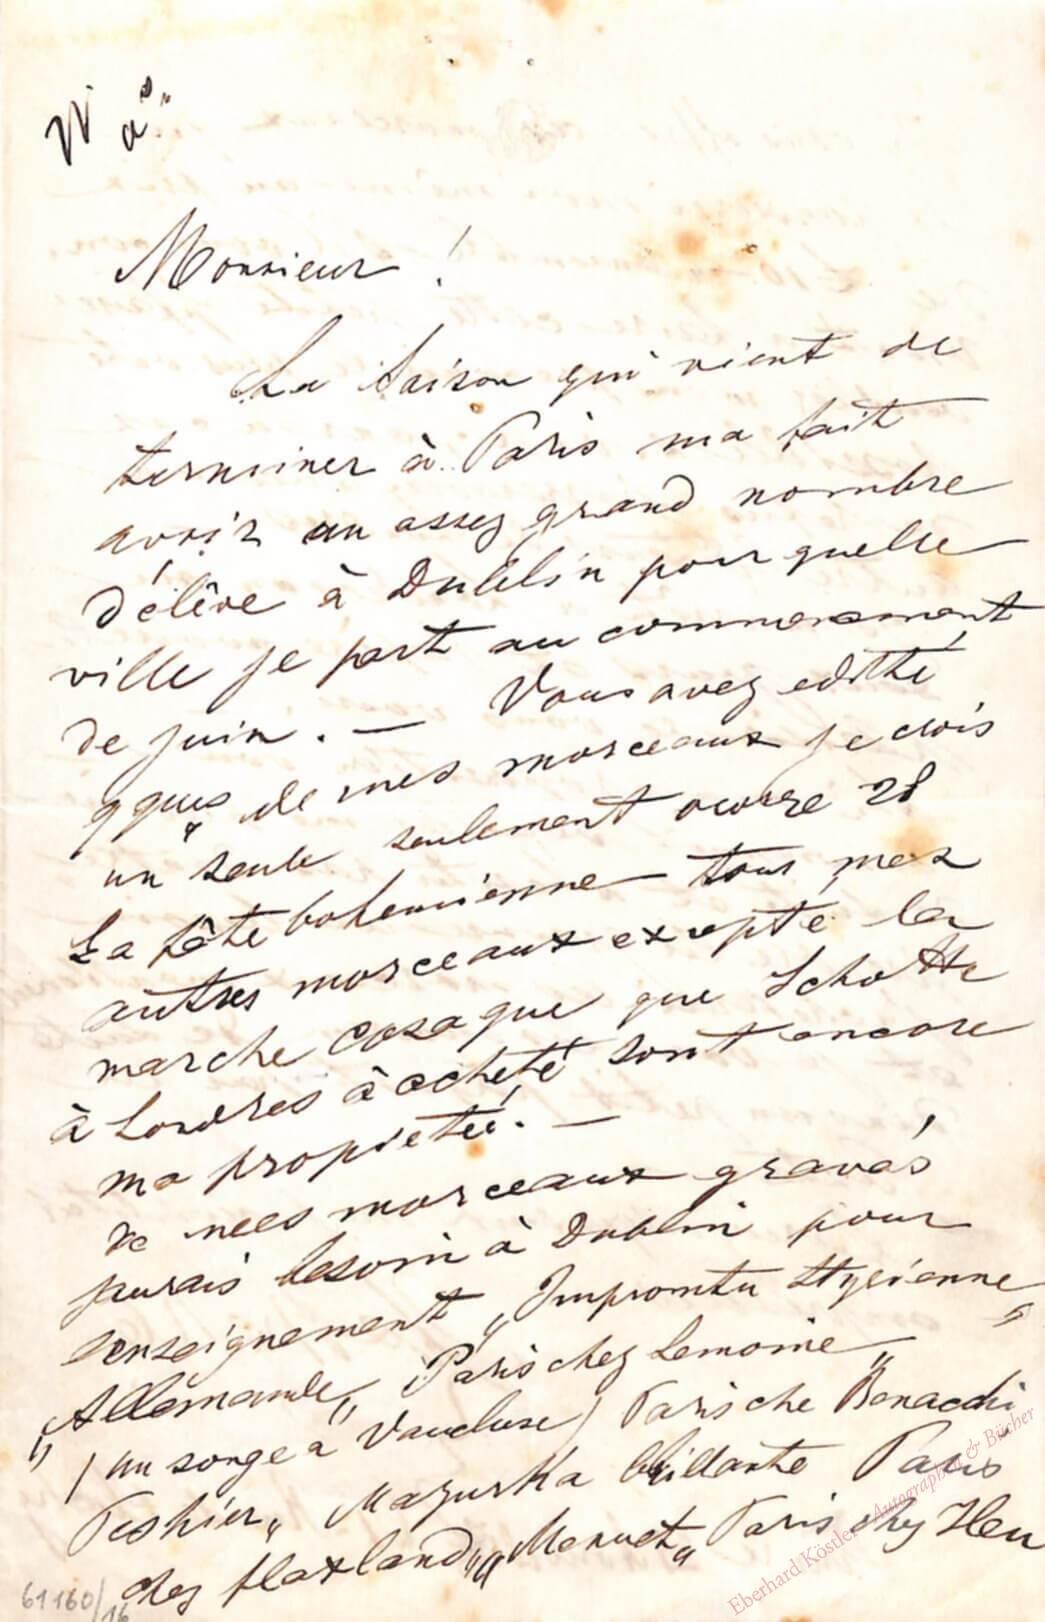 Monsieur !
La saison qui vient de
terminer à Paris ma fait
avoir un assez grand nombre
d'élêve à Dublin pour quelle
ville je part au commencement
de juin. — Vous avez edithé
qques de mes morceaux je crois
un seule seulement oeuvre 28
La fête bohemienne tous mes
autres morceaux exepté la
marche cosaque que Schotte
à Londres à acheté sont encore
ma proprietée. —
De mes morceaux gravés
jaurais besoin à Dublin pour
lenseignement „Impromtu Styrienne"
„Allemande" Paris chez Lemoine
(un songe a Vaucluse) Paris che
Mazurka brillante Paris
chez Flaxland „Menuet" Paris chez Heu
61160/16
Eberhard Köstler Autographen & Bücher